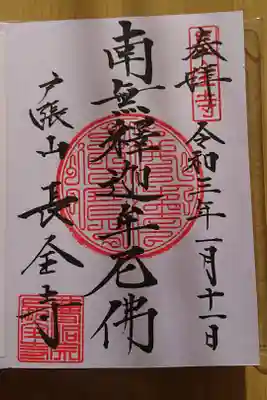 奉拝
令和三年一月十一日
南無釋迦牟尼佛
戸張山
長全寺